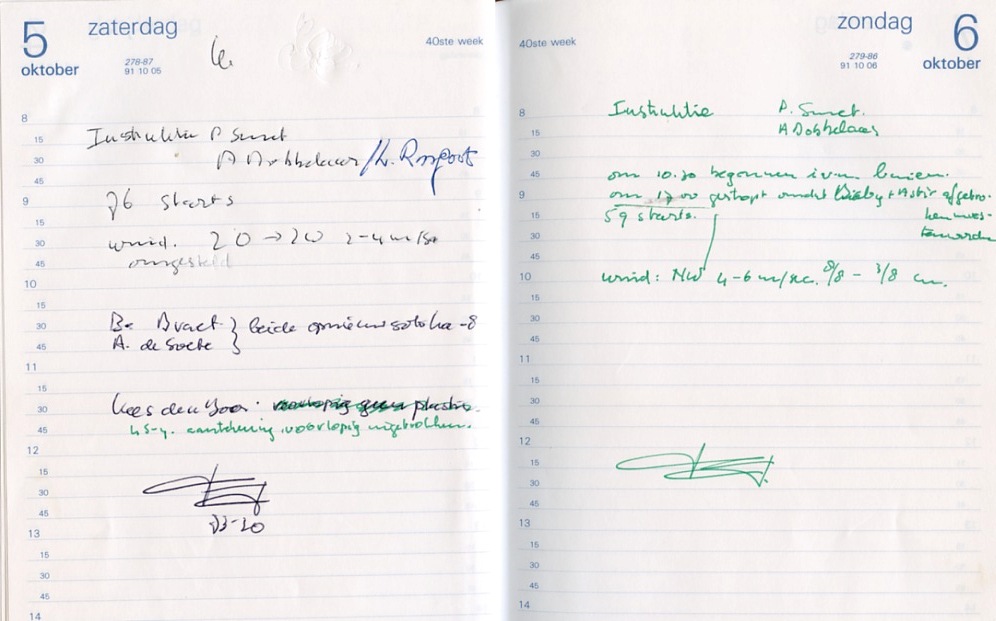 5 zaterdag
oktober
278-87
91 10 05
40ste week
8
15
Instruktie P Smet
30
A Dobbelaer / L. Raspoot
45
9
76 starts
15
30
wind. ZO → ZW 2-4 m/sec
45
omgesteld
10
15
30
B. Braet } beide opnieuw solo ka-8
45
A. de Soete
11
15
30
Kees den Yoor. voorlopig geen plastic.
45
aantekening voorlopig
12
15
30
45
13
15
30
45
14
zondag 6
oktober
40ste week
279-86
91 10 06
8
Instruktie P. Smet.
15
A Dobbelaer
30
45
om 10.30 begonnen i.v.m.
9
om 17 00 gestopt omdat + Astir afgebro-
15
59 starts. ken moes-
30
45
10
wind: NW 4-6 m/sec. 8/8 - 3/8 cu.
15
30
45
11
15
30
45
12
15
30
45
13
15
30
45
14